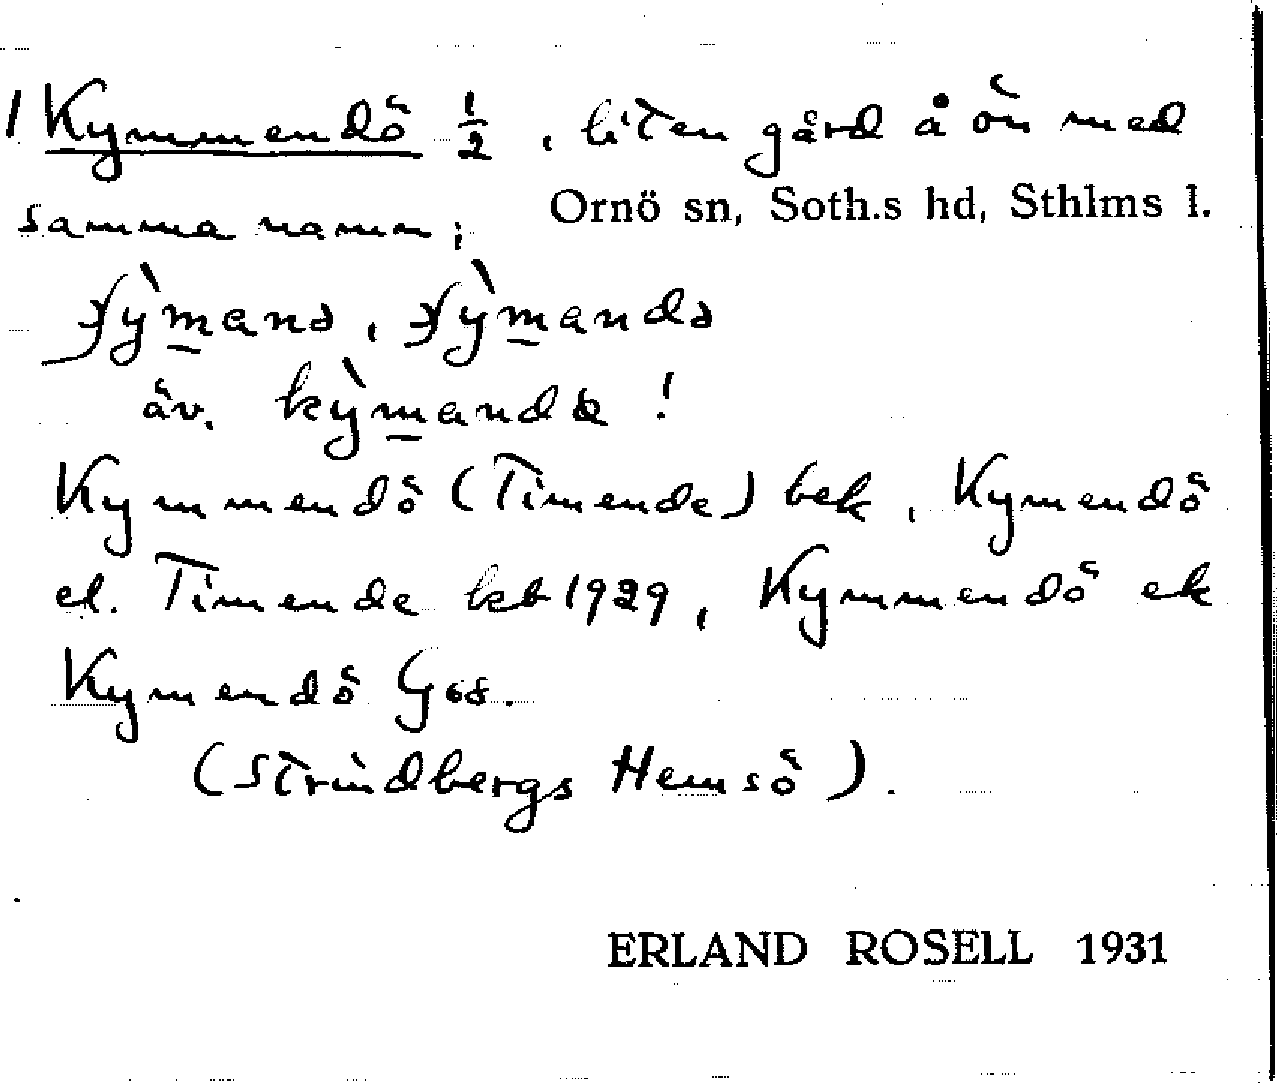 1 Kymmendö 1/2, liten gård å ön med
Ornö sn, Soth.s hd, Sthlms l.
samma namn;
äv. kỳmandə !
Kymmendö (Timende) bek, Kymendö
el. Timende kb 1929, Kymmendö ek
Kymendö Gös.
(Strindbergs Hemsö).
ERLAND ROSELL 1931